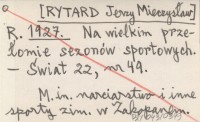 [RYTARD Jerzy Mieczysław]
R. 1927. Na wielkim prze-
łomie sezonów sportowych.
- Świat 22, nr 49.
M. in. narciarstwo i inne
sporty zim. w Zakopanem.